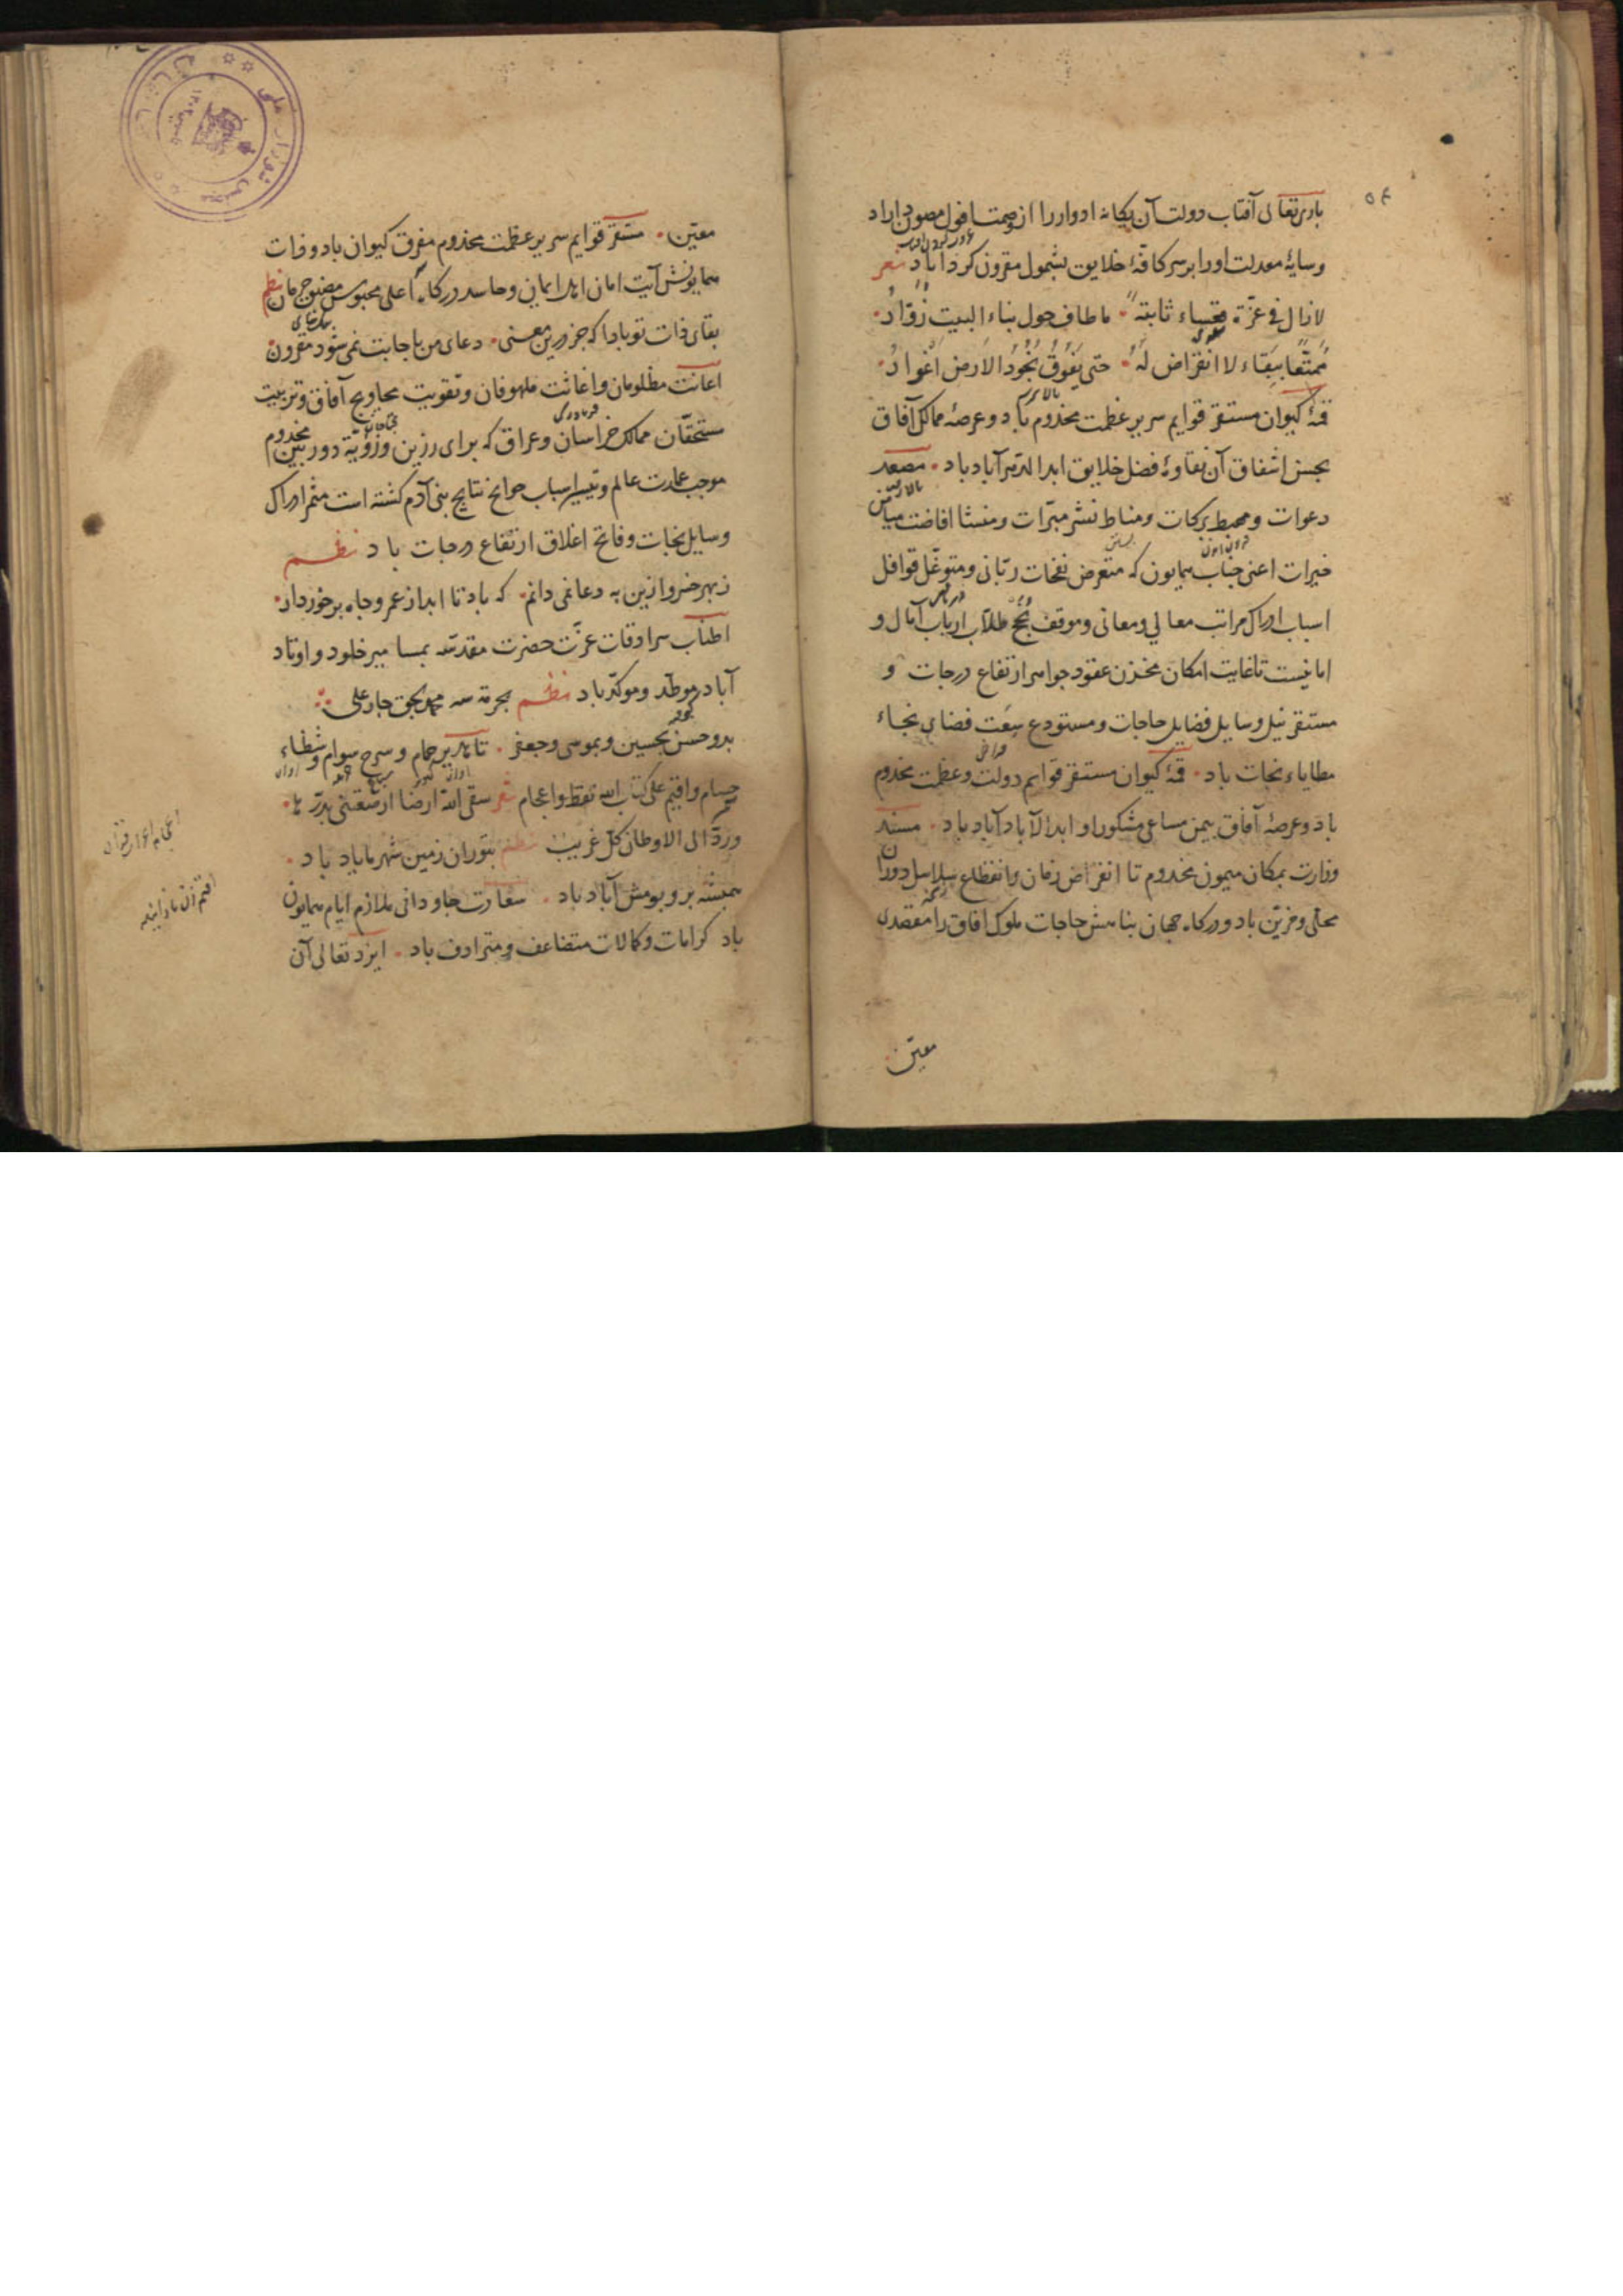 باری تعالی آفتاب دولت آن یکانه ادوار را از وصمت افول مصون داراد
وسایهٔ معدلت او را بر سر کافهٔ خلایق بشمول مقرون کرداناد شعر
لا زال فی عزّة قعساء ثابتة ما طاف حول بناء البیت زوّار
ممتّعا ببقاء لا انقراض له حتی یفوق نجود الارض اغوار
قمهٔ کیوان مستقر قوایم سریر عظمت مخدوم باد وعرصهٔ ممالک آفاق
بحسن اشفاق آن نقاوهٔ فضل خلایق ابد الدهر آباد باد مصعد
دعوات ومحیط برکات ومناط نشر مبرّات ومنشا افاضت میامن
خیرات اعنی جناب همایون که متعرض نفحات ربّانی ومتوغّل قوافل
اسباب ادراک مراتب معالی ومعانی وموقف نجح طلاب ارباب آمال و
امانیست تا غایت امکان مخزن عقود جواهر ارتفاع درجات و
مستقر نیل وسایل فضایل حاجات ومستودع سعت فضای نجاء
مطایاء نجات باد قمهٔ کیوان مستقر قوایم دولت وعظمت مخدوم
باد وعرصهٔ آفاق بیمن مساعی مشکور او ابد الآباد آباد باد مسند
وزارت بمکان میمون مخدوم تا انقراض زمان وانقطاع سلاسل دوران
محلی ومزیّن باد ودرکاه جهان پناهش حاجات ملوک آفاق را مقصدی
معیّن
معیّن مستقر قوایم سریر عظمت مخدوم مفرق کیوان باد وذات
همایونش آیت امان اهل ایمان وحاسد درکاه اعلی محبوس حرمان نظم
بقای ذات تو بادا که جز درین معنی دعای من باجابت نمی شود مقرون
اعانت مظلومان واغاثت ملهوفان وتقویت محاویج آفاق وتربیت
مستحقّان ممالک خراسان وعراق که برای رزین ورؤیة دوربین مخدوم
موجب عمارت عالم وتیسیر اسباب حوایج نتایج بنی آدم کشته است مثمر ادراک
وسایل نجات وفاتح اغلاق ارتفاع درجات باد نظم
ز بهر خسرو ازین به دعا نمی دانم که باد تا ابد از عمر وجاه برخوردار
اطناب سرادقات عزّت حضرت مقدّسه بمسامیر خلود واوتاد
آباد موطّد وموکّد باد نظم بحرمة سه محمد بحق چار علی
بدو حسن بحسین وبموسی وجعفر تا هدیر حمام وسرح سوام وشظاء
حسام واقیم علی کتاب الله نقط واعجام شعر سقی الله ارضا ارضعتنی بدرّها
وردّ الی الاوطان کل غریب نظم بتوران زمین شهر ما باد باد
همیشه بر وبومش آباد باد سعادت جاودانی ملازم ایام همایون
باد کرامات وکمالات متضاعف ومترادف باد ایزد تعالی آن